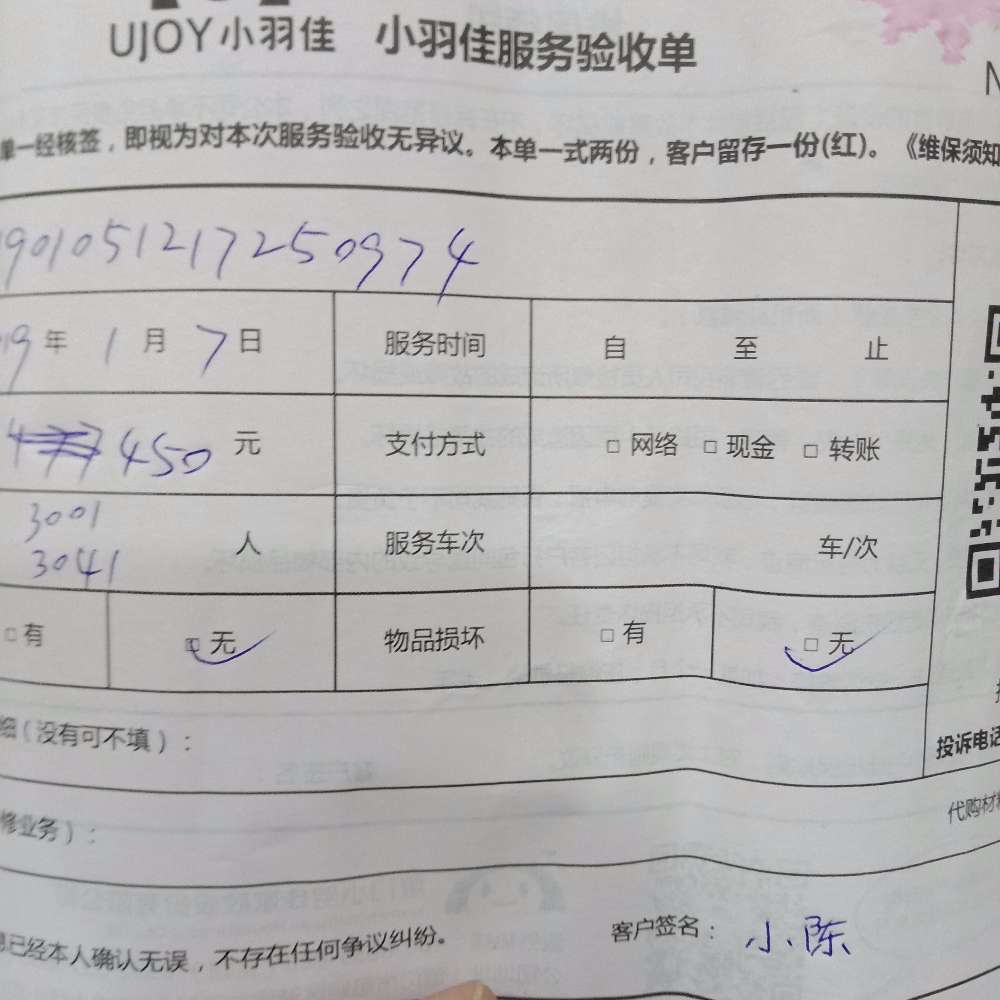 UJOY小羽佳 小羽佳服务验收单
单一经核签，即视为对本次服务验收无异议。本单一式两份，客户留存一份(红)。《维保须知
190105121725 0974
19年 1月 7日 服务时间 自 至 止
450 元 支付方式 □ 网络 □ 现金 □ 转账
3001
3041 人 服务车次 车/次
□ 有 □ 无 物品损坏 □ 有 □ 无
细(没有可不填)：
投诉电话
修业务)：
代购材料
息已经本人确认无误，不存在任何争议纠纷。
客户签名：小陈